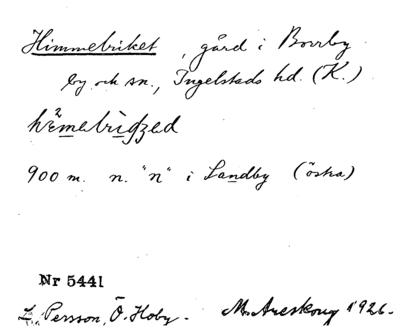 Himmelriket, gård i Borrby
by och sn., Ingelstads hd. (K.)
900 m. n. "n" i Sandby (östra)
Nr 5441
L. Persson, Ö. Hoby. M. Areskoug 1926.